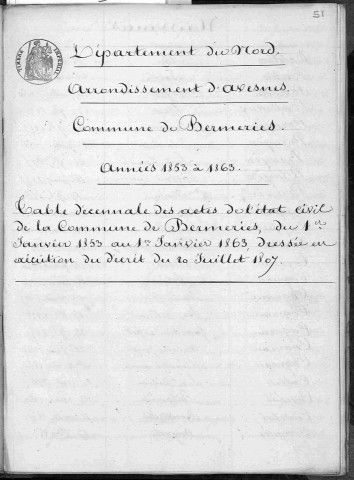 51
TIMBRE IMPERIAL
Département du Nord.
Arrondissement d'Avesnes.
Commune de Bermeries.
Années 1853 à 1863.
Table décennale des actes de l'état civil
de la Commune de Bermeries, du 1er
Janvier 1853 au 1er Janvier 1863, dressée en
exécution du décret du 20 Juillet 1807.